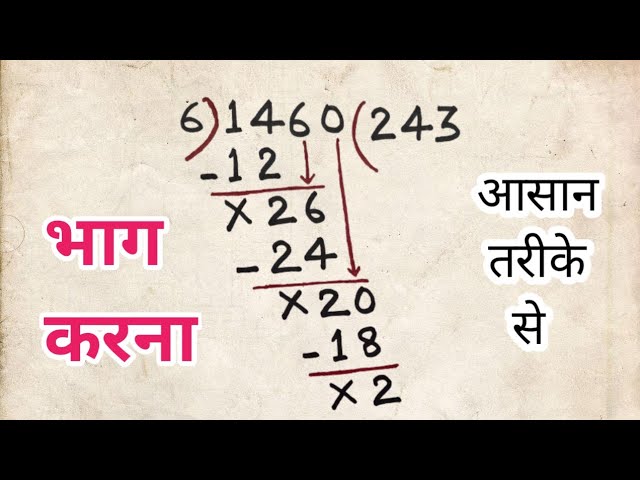 6)1460(243
-12
×26
-24
×20
-18
×2
भाग
करना
आसान
तरीके
से